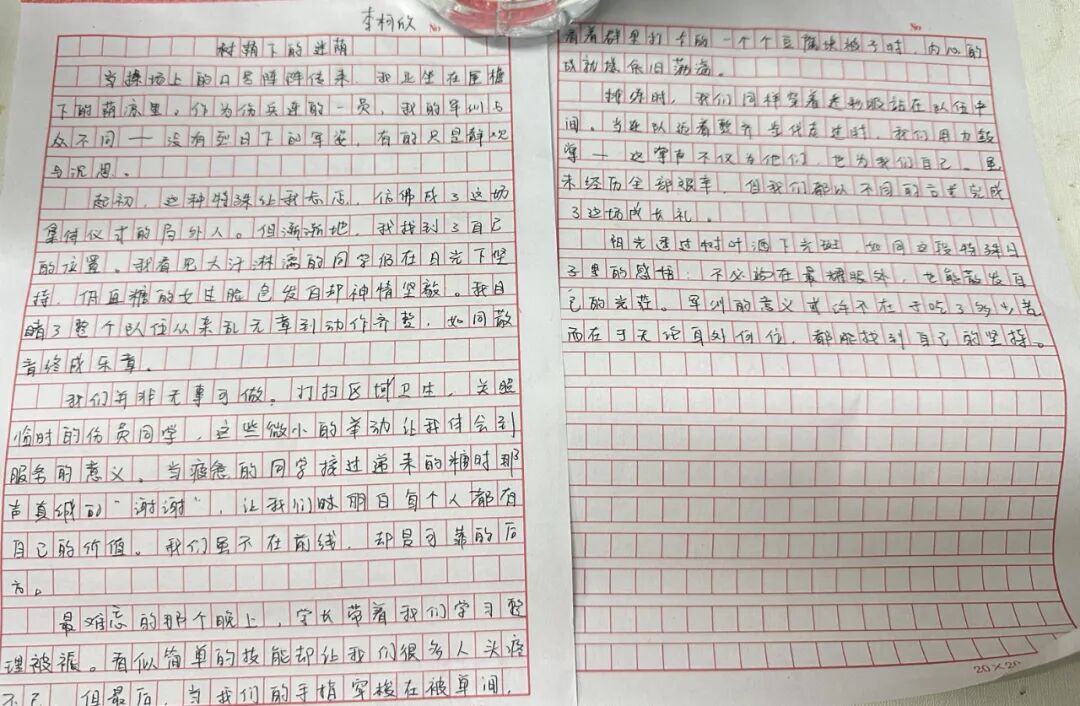 李柯欣
No
树鞘下的迷荫
当操场上的口号阵阵传来,我正坐在
下的荫凉里。作为伤兵连的一员,我的军训与
众不同——没有烈日下的军姿,有的只是静观
与沉思。
起初,这种特殊让我忐忑,仿佛成了这场
集体仪式的局外人。但渐渐地,我找到了自己
的位置。我看见大汗淋漓的同学仍在日光下坚
持,低血糖的女生脸色发白却神情坚毅。我目
睹了整个队伍从杂乱无章到动作齐整,如同散
音终成乐章。
我们并非无事可做。打扫区域卫生,关照
临时的伤员同学,这些微小的举动让我体会到
服务的意义。当疲惫的同学接过递来的糖时那
声真诚的“谢谢”,让我们明白每个人都有
自己的价值。我们虽不在前线,却是可靠的后
方。
最难忘的那个晚上,学长带着我们学习整
理被褥。看似简单的技能却让我们很多人头疼
不已,但最后,当我们的手指穿梭在被单间,
No
看着群里打卡的一个个豆腐块被子时,内心的
成就感依旧荡漾。
排练时,我们同样穿着迷彩服站在队伍中
间。当连队迈着整齐步伐走过时,我们用力鼓
掌——这掌声不仅为他们,也为我们自己。虽
未经历全部艰辛,但我们都以不同的方式完成
了这场成长礼。
阳光透过树叶洒下光斑,如同这段特殊日
子里的感悟:不必站在最耀眼处,也能散发自
己的光芒。军训的意义或许不在于吃了多少苦
而在于无论身处何位,都能找到自己的坚持。
20×20